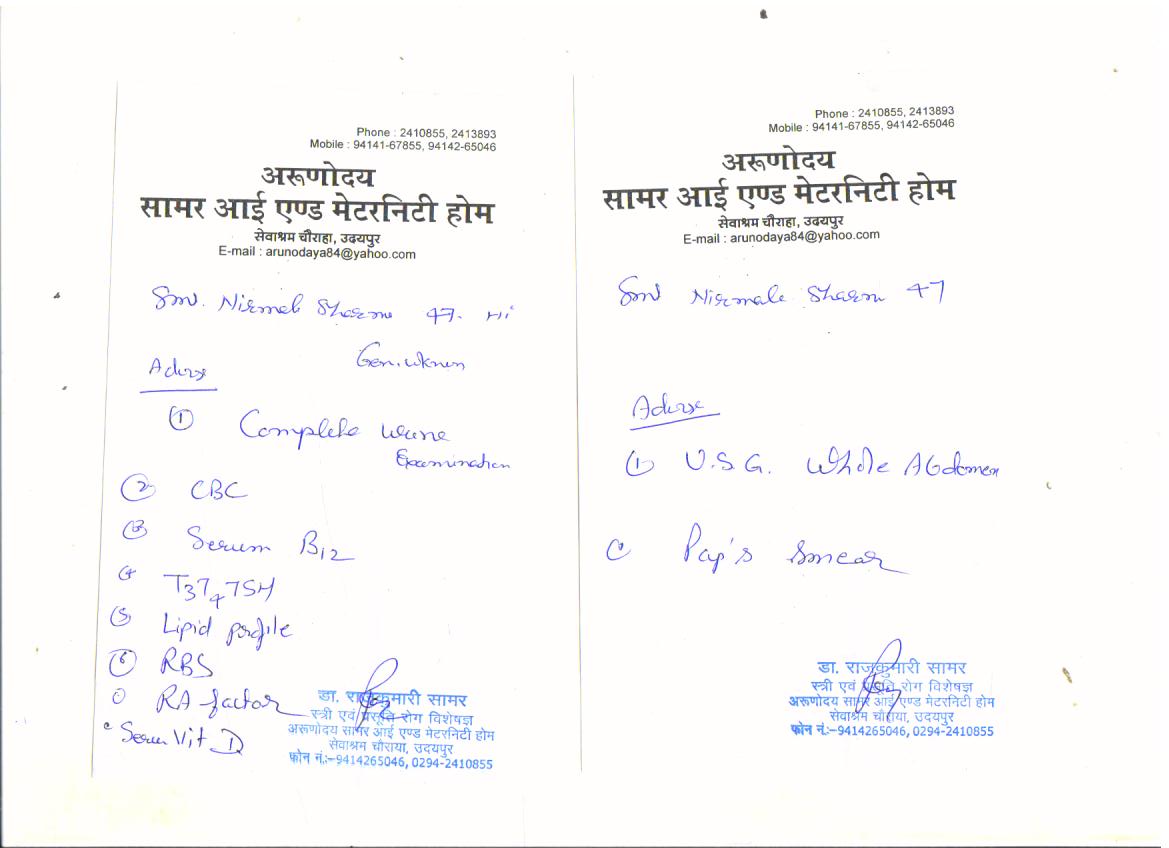 Phone : 2410855, 2413893
Mobile : 94141-67855, 94142-65046
अरूणोदय
सामर आई एण्ड मेटरनिटी होम
सेवाश्रम चौराहा, उदयपुर
E-mail : arunodaya84@yahoo.com
Nirmal Sharma 47.
Gen.
Advise
① Complete Urine
Examination
② CBC
③ Serum B12
④ T3T4TSH
⑤ Lipid profile
⑥ RBS
RA factor
Serum Vit D
डा. राजकुमारी सामर
स्त्री एवं प्रसूति रोग विशेषज्ञ
अरूणोदय सामर आई एण्ड मेटरनिटी होम
सेवाश्रम चौराया, उदयपुर
फोन नं:-9414265046, 0294-2410855
Phone : 2410855, 2413893
Mobile : 94141-67855, 94142-65046
अरूणोदय
सामर आई एण्ड मेटरनिटी होम
सेवाश्रम चौराहा, उदयपुर
E-mail : arunodaya84@yahoo.com
Nirmala Sharma 47
Advise
① U.S.G. Whole Abdomen
Pap's Smear
डा. राजकुमारी सामर
स्त्री एवं प्रसूति रोग विशेषज्ञ
अरूणोदय सामर आई एण्ड मेटरनिटी होम
सेवाश्रम चौराया, उदयपुर
फोन नं:-9414265046, 0294-2410855